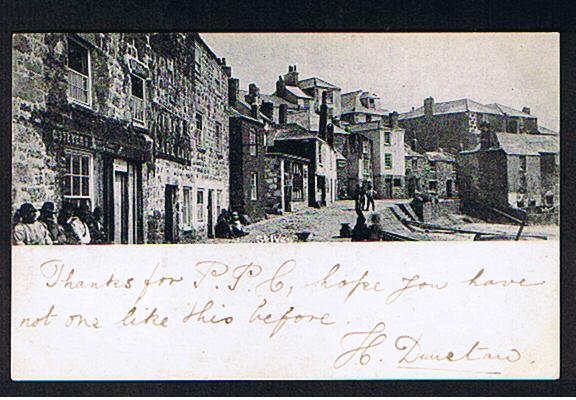 Thanks for P.P.C, hope you have
not one like this before.
H. Dunstan.